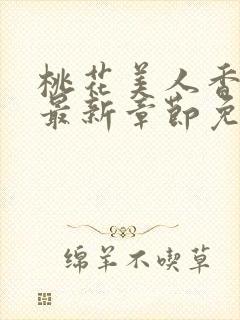 桃花美人香
最新章節免
绵羊不喫草